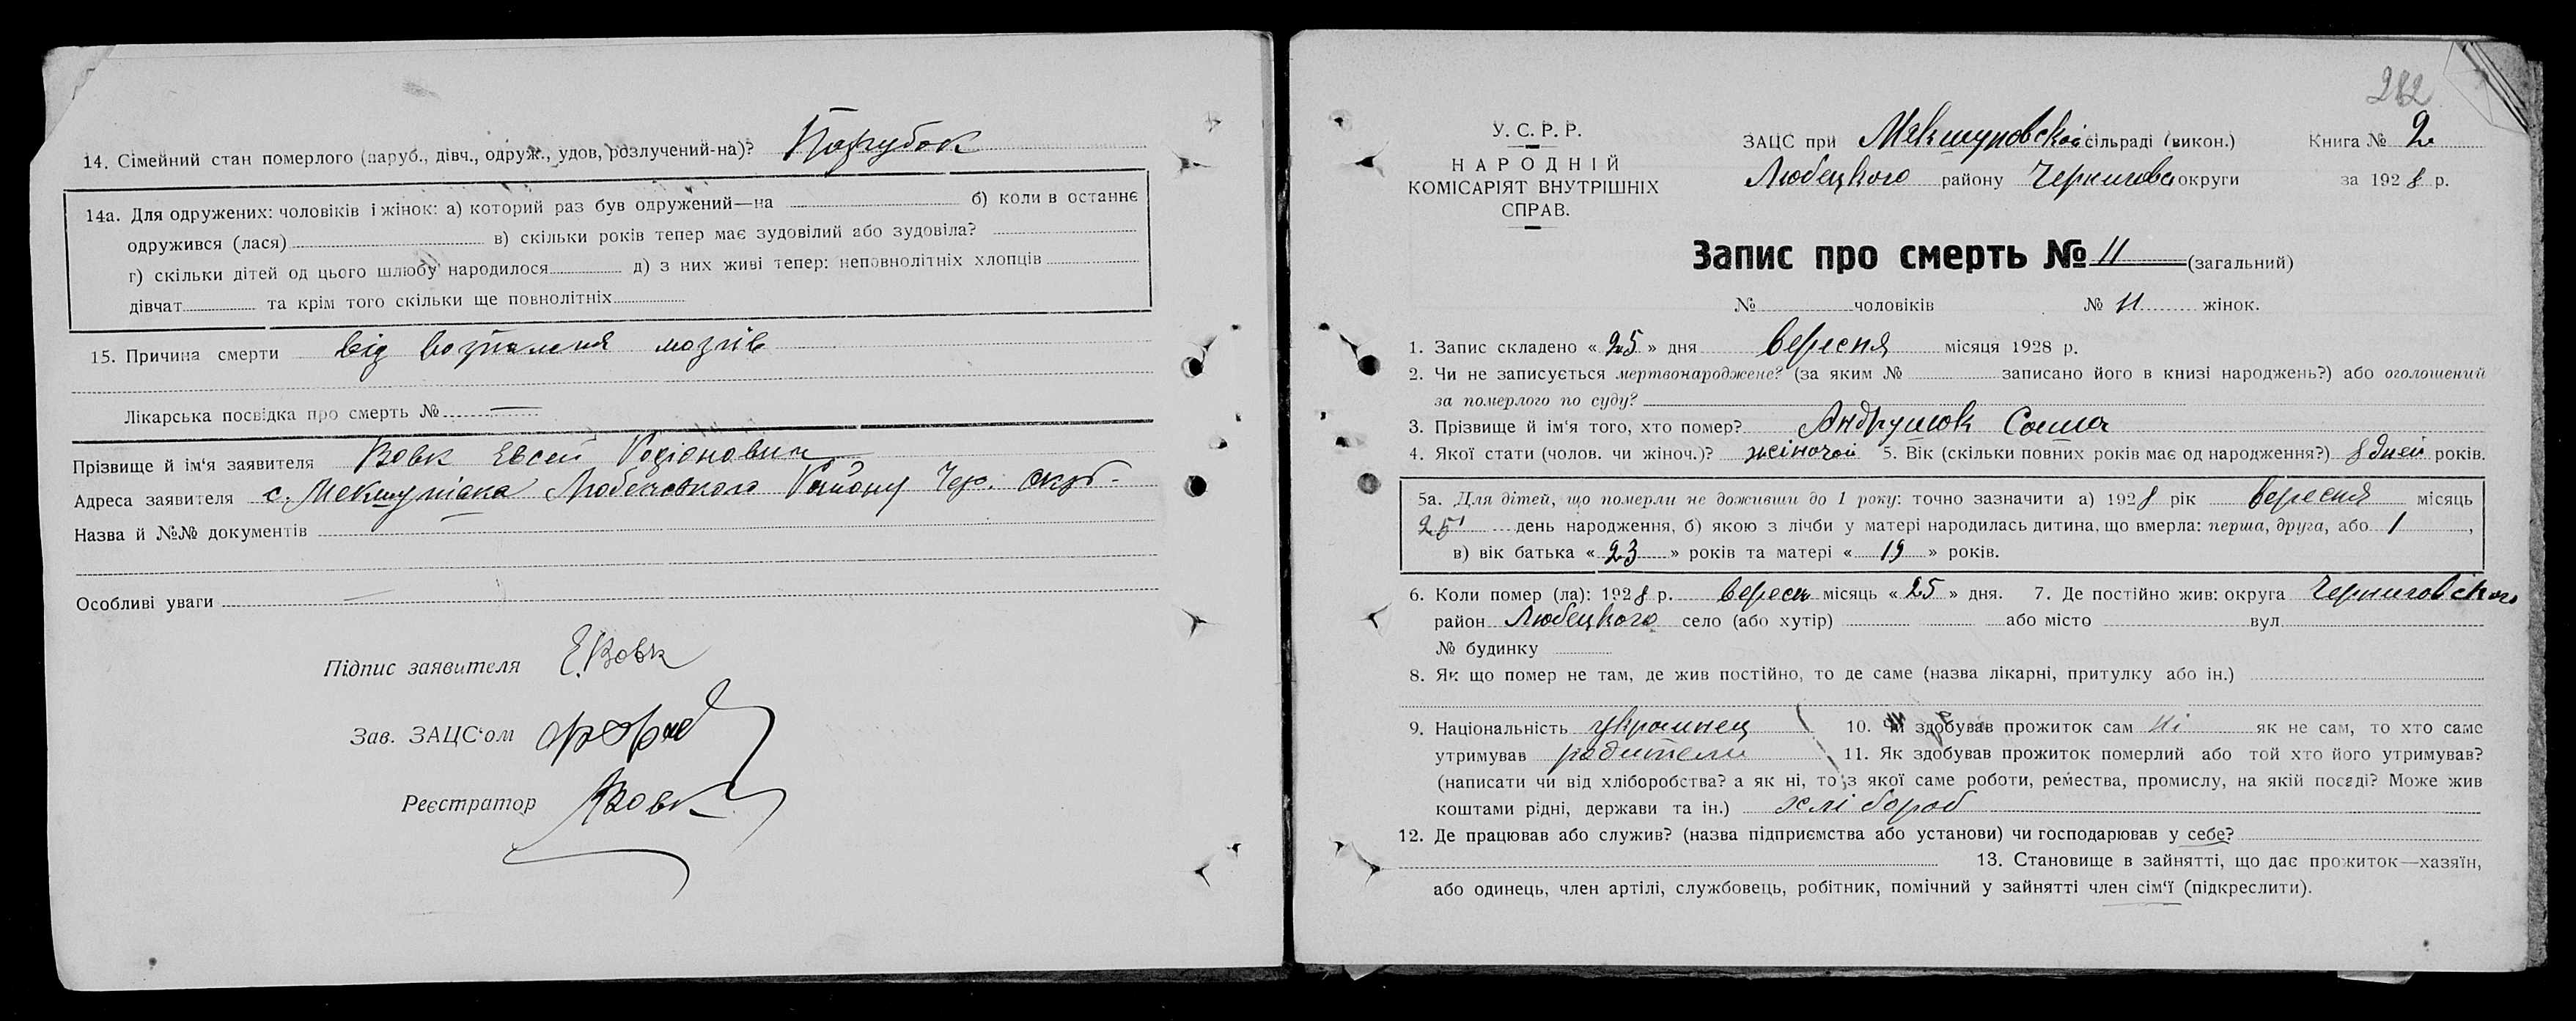 14. Сімейний стан померлого (паруб., дівч., одруж., удов, розлучений-на)? Парубок
14а. Для одружених: чоловіків і жінок: а) который раз був одружений—на б) коли в останнє
одружився (лася) в) скільки років тепер має зудовілий або зудовіла?
г) скільки дітей од цього шлюбу народилося д) з них живі тепер: неповнолітніх хлопців
дівчат та крім того скільки ще повнолітніх
15. Причина смерти від возпаленя мозгів
Лікарська посвідка про смерть № —
Прізвище й ім'я заявителя Вовк Евсей Родіонович
Адреса заявителя с. Мекшунівка Любечського Району Чер. окр.
Назва й №№ документів
Особливі уваги —
Підпис заявителя Е. Вовк
Зав. ЗАЦС'ом
Реєстратор Вовк
282
У. С. Р. Р.
НАРОДНІЙ
КОМІСАРІЯТ ВНУТРІШНІХ
СПРАВ.
ЗАЦС при Мекшуновской сільраді (викон.) Книга № 2
Любецкого району Черниговс округи за 1928 р.
Запис про смерть № 11 (загальний)
№ чоловіків № 11 жінок.
1. Запис складено « 25 » дня вересня місяця 1928 р.
2. Чи не записується мертвонароджене? (за яким № записано його в книзі народжень?) або оголошений
за померлого по суду?
3. Прізвище й ім'я того, хто помер? Андрушок Соша
4. Якої стати (чолов. чи жіноч.)? жіночой 5. Вік (скільки повних років має од народження?) 8 дней років.
5а. Для дітей, що померли не доживши до 1 року: точно зазначити а) 1928 рік вересня місяць
25 день народження, б) якою з лічби у матері народилась дитина, що вмерла: перша, друга, або 1,
в) вік батька « 23 » років та матері « 19 » років.
6. Коли помер (ла): 1928 р. вересн місяць « 25 » дня. 7. Де постійно жив: округа Черниговского
район Любецкого село (або хутір) або місто вул
№ будинку
8. Як що помер не там, де жив постійно, то де саме (назва лікарні, притулку або ін.)
9. Національність украинец 10. Чи здобував прожиток сам ні як не сам, то хто саме
утримував родители 11. Як здобував прожиток померлий або той хто його утримував?
(написати чи від хліборобства? а як ні, то з якої саме роботи, ремества, промислу, на якій посаді? Може жив
коштами рідні, держави та ін.) хлібороб
12. Де працював або служив? (назва підприємства або установи) чи господарював у себе?
13. Становище в зайнятті, що дає прожиток—хазяїн,
або одинець, член артілі, службовець, робітник, помічний у зайнятті член сім'ї (підкреслити).